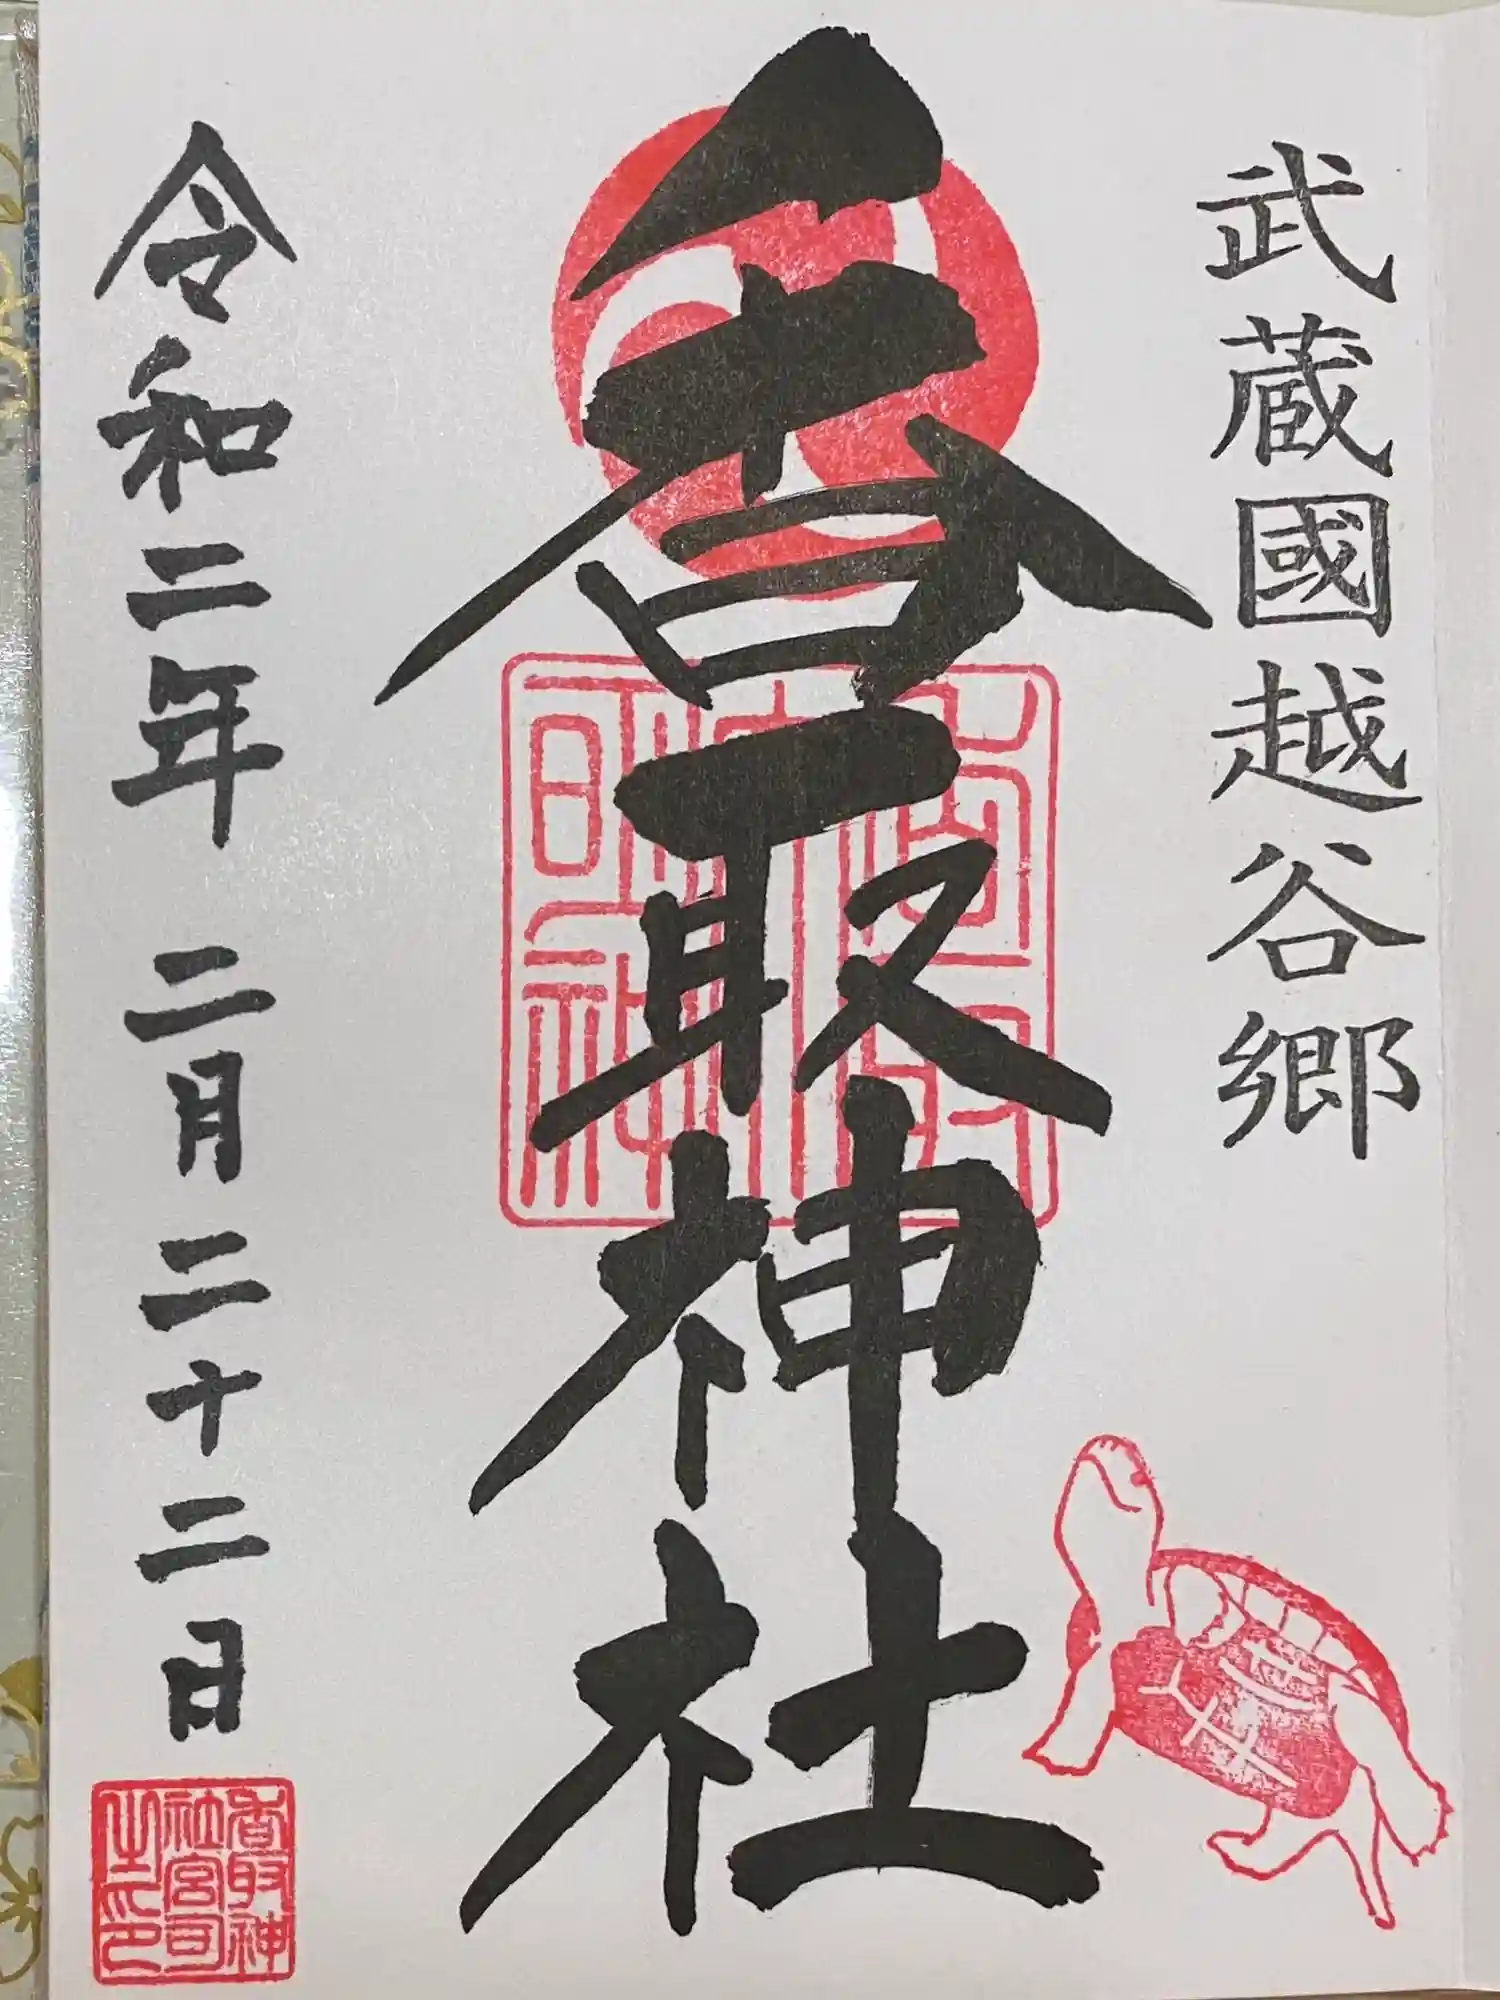 武蔵國越谷郷
香取神社
令和二年 二月 二十二日
香取神
社宮司
之印